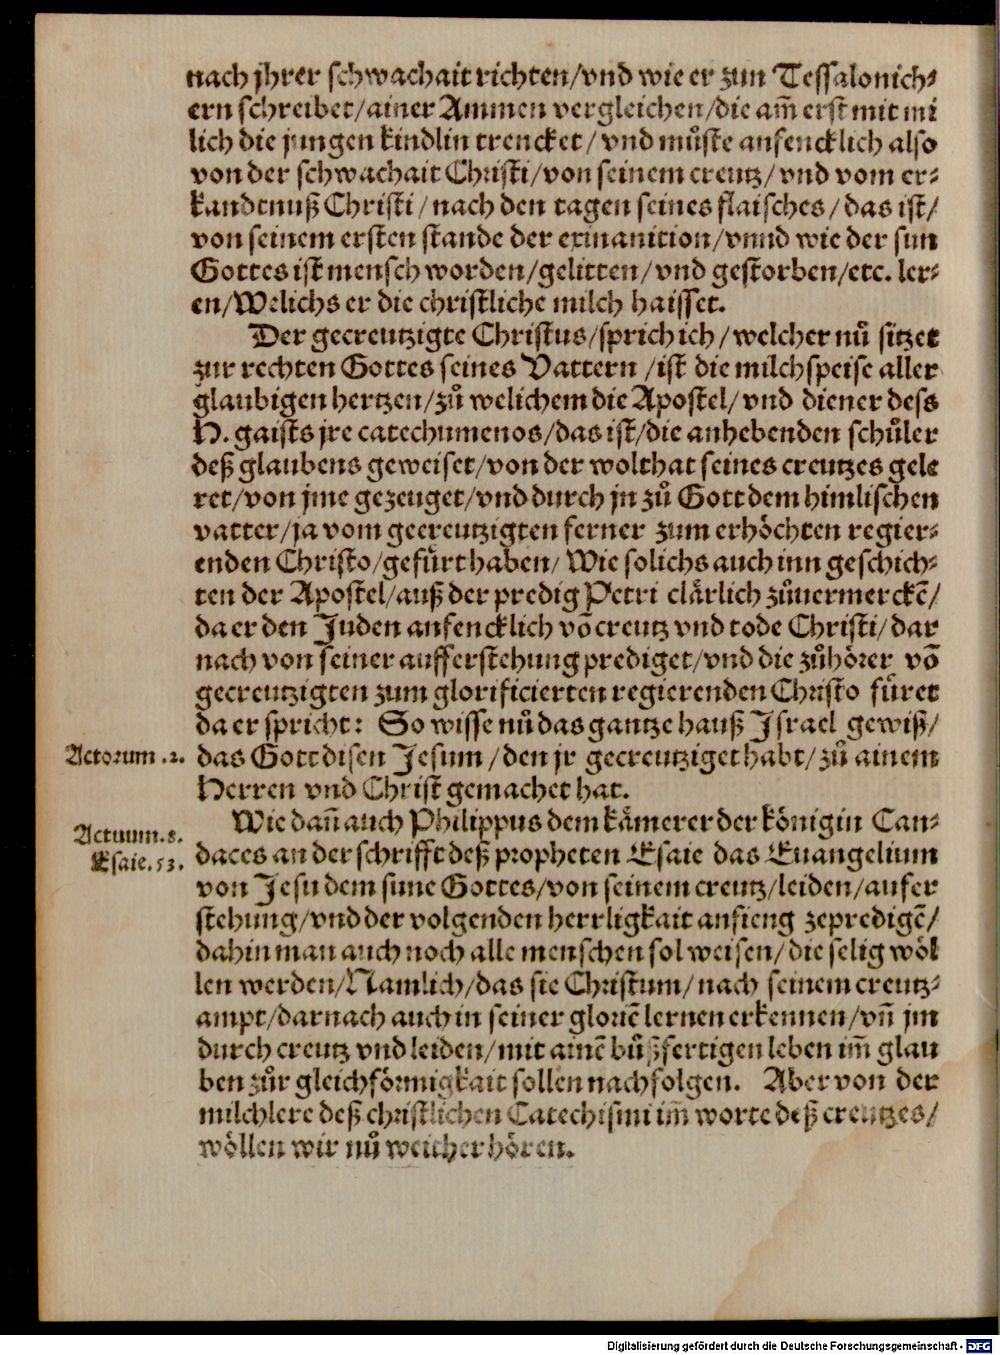 nach jhrer schwachait richten/vnd wie er zun Tessalonich⸗
ern schreibet/ainer Ammen vergleichen/die am̃ erst mit mi
lich die jungen kindlin trencket/ vnd můste anfencklich also
von der schwachait Christi/von seinem creutz/ vnd vom er⸗
kandtnuß Christi/ nach den tagen seines flaisches/ das ist/
von seinem ersten stande der exinanition/vnnd wie der sun
Gottes ist mensch worden/gelitten/ vnd gestorben/etc. ler⸗
en/Welichs er die christliche milch haisset.
Der gecreutzigte Christus/sprich ich/ welcher nů sitzet
zur rechten Gottes seines Vattern /ist die milchspeise aller
glaubigen hertzen/zů welichem die Apostel/ vnd diener dess
H. gaists jre catechumenos/das ist/die anhebenden schůler
deß glaubens geweiset/von der wolthat seines creutzes gele
ret/von jme gezeuget/vnd durch jn zů Gott dem himlischen
vatter/ja vom gecreutzigten ferner zum erhöchten regier⸗
enden Christo/gefůrt haben/ Wie solichs auch inn geschich⸗
ten der Apostel/auß der predig Petri clärlich zůuermerckẽ/
da er den Juden anfencklich võ creutz vnd tode Christi/ dar
nach von seiner aufferstehung prediget/vnd die zůhörer võ
gecreutzigten zum glorificierten regierenden Christo fůret
da er spricht: So wisse nů das gantze hauß Israel gewiß/
Actorum .2. das Gott disen Jesum /den jr gecreutziget habt/ zů ainem
Herren vnd Christ gemachet hat.
Wie dañ auch Philippus dem kämerer der königin Can⸗
Actuum.8.
daces an der schrifft deß propheten Esaie das Euangelium
Esaie.53.
von Jesu dem sune Gottes/von seinem creutz/leiden/aufer
stehung/vnd der volgenden herrligkait anfieng zepredigẽ/
dahin man auch noch alle menschen sol weisen/ die selig wöl
len werden/Namlich/das sie Christum/ nach seinem creutz⸗
ampt/darnach auch in seiner gloriẽ lernen erkennen/vñ jm
durch creutz vnd leiden/mit ainẽ bůßfertigen leben im̃ glau
ben zůr gleichförmigkait sollen nachfolgen. Aber von der
milchlere deß christlichen Catechismi im̃ worte deß creutzes/
wöllen wir nů weither hören.
Digitalisierung gefördert durch die Deutsche Forschungsgemeinschaft - DFG